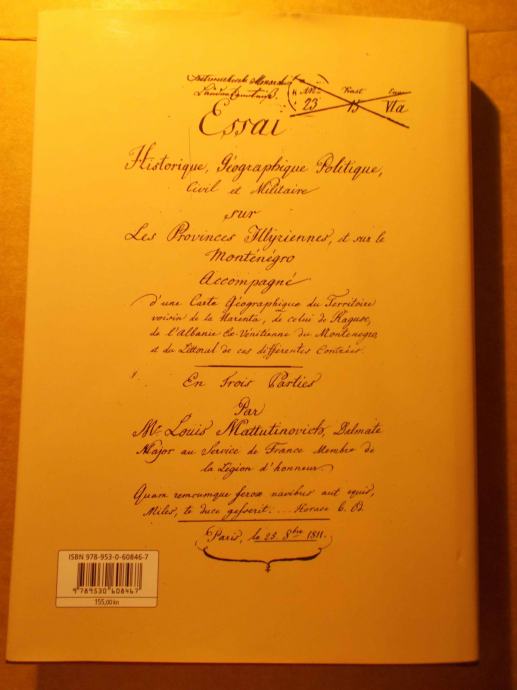 "AN: Kast Fasc
23 15 VI a
Essai
Historique, Géographique Politique,
Civil et Militaire
sur
Les Provinces Illyriennes, et sur le
Monténégro
Accompagné
d'une Carte Géographique du Territoire
voisin de la Narenta, de celui de Raguse,
de l'Albanie Ex-Vénitienne du Montenegro,
et du Littoral de ces différentes Contrées.
En Trois Parties
Par
Mr. Louis Mattutinovich, Delmate
Major au Service de France Membre de
la Légion d'honneur
Quam remcumque ferox navibus aut equis,
Miles, te duce gesserit. ... Horace 6. Od.
Paris, le 25 8bre 1811.
ISBN 978-953-0-60846-7
9 789530 608467
155,00 kn